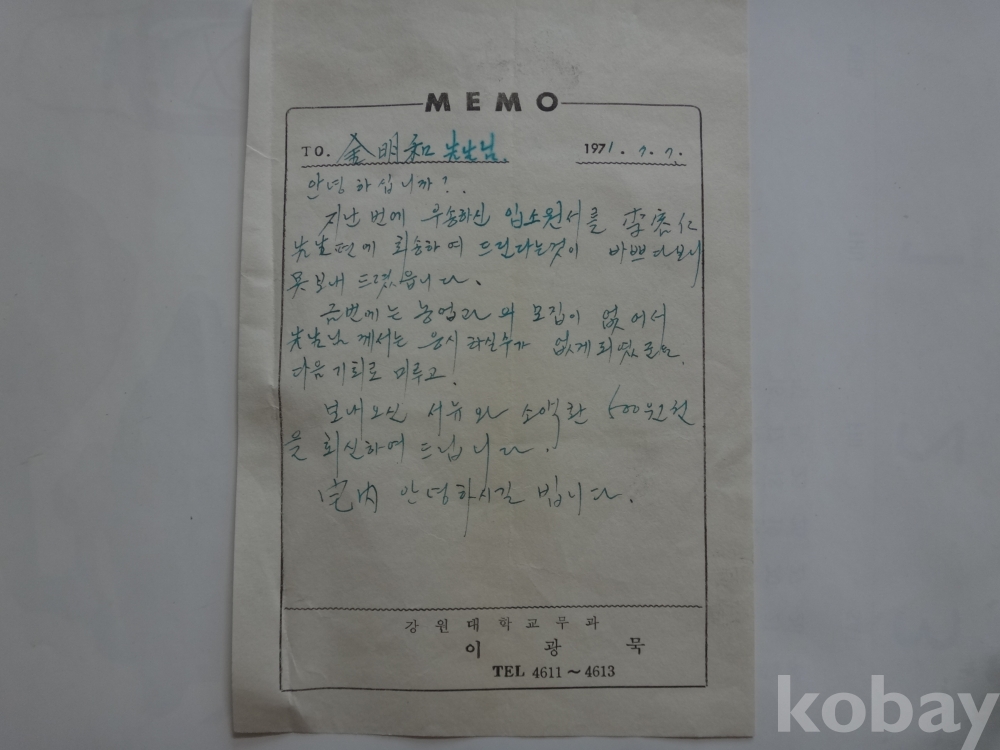 MEMO
TO. 金明和 先生님. 1971. 7. 7.
안녕하십니까?.
지난 번에 우송하신 입소원서를 李 仁
先生편에 회송하여 드린다는것이 바쁘다보니
못보내 드렸읍니다.
금번에는 농업과의 모집이 없어서
先生님 께서는 응시 하실수가 없게되였
다음기회로 미루고.
보내오신 서류와 소액환 500원권
을 회신하여 드립니다.
宅内 안녕하시길 빕니다.
강원대학교무과
이 광 묵
TEL 4611~4613
kobay